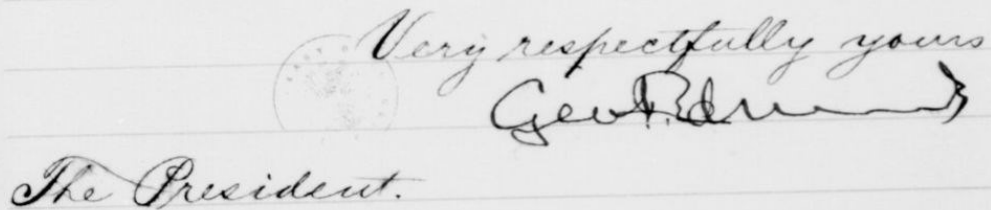 Very respectfully yours
Geo F. Edmunds
The President.